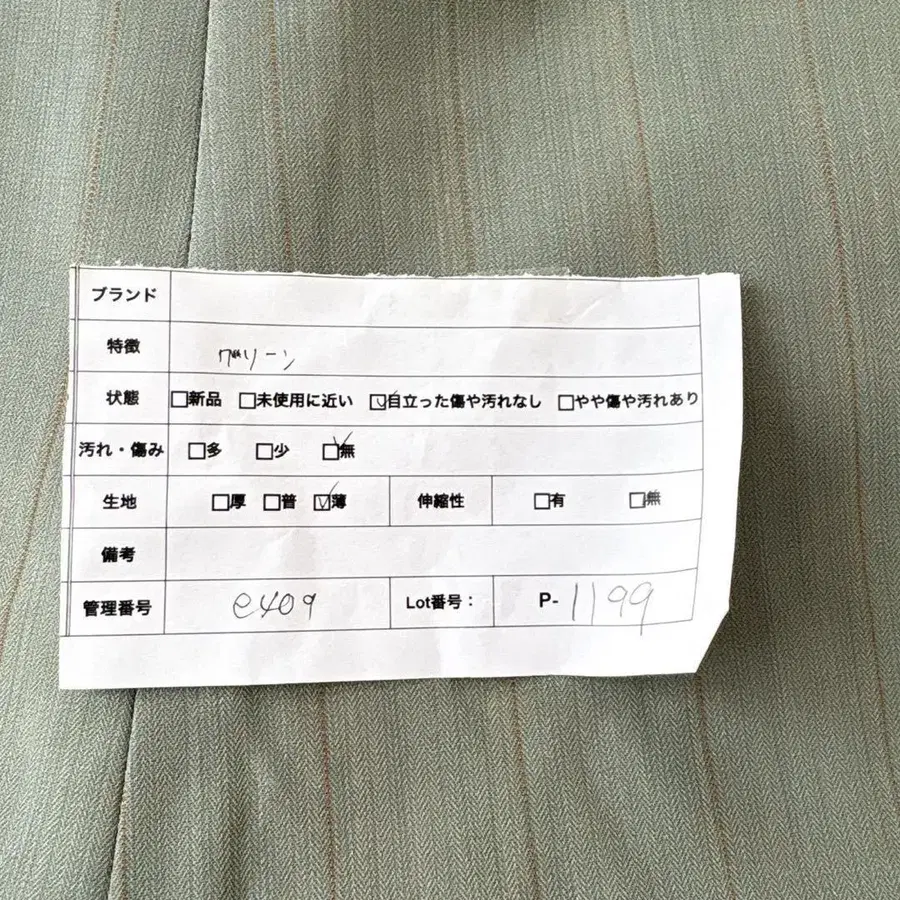 ブランド
特徴 グリーン
状態 □新品 □未使用に近い ☑目立った傷や汚れなし □やや傷や汚れあり
汚れ・傷み □多 □少 ☑無
生地 □厚 □普 ☑薄 伸縮性 □有 □無
備考
管理番号 e409 Lot番号： P-1199